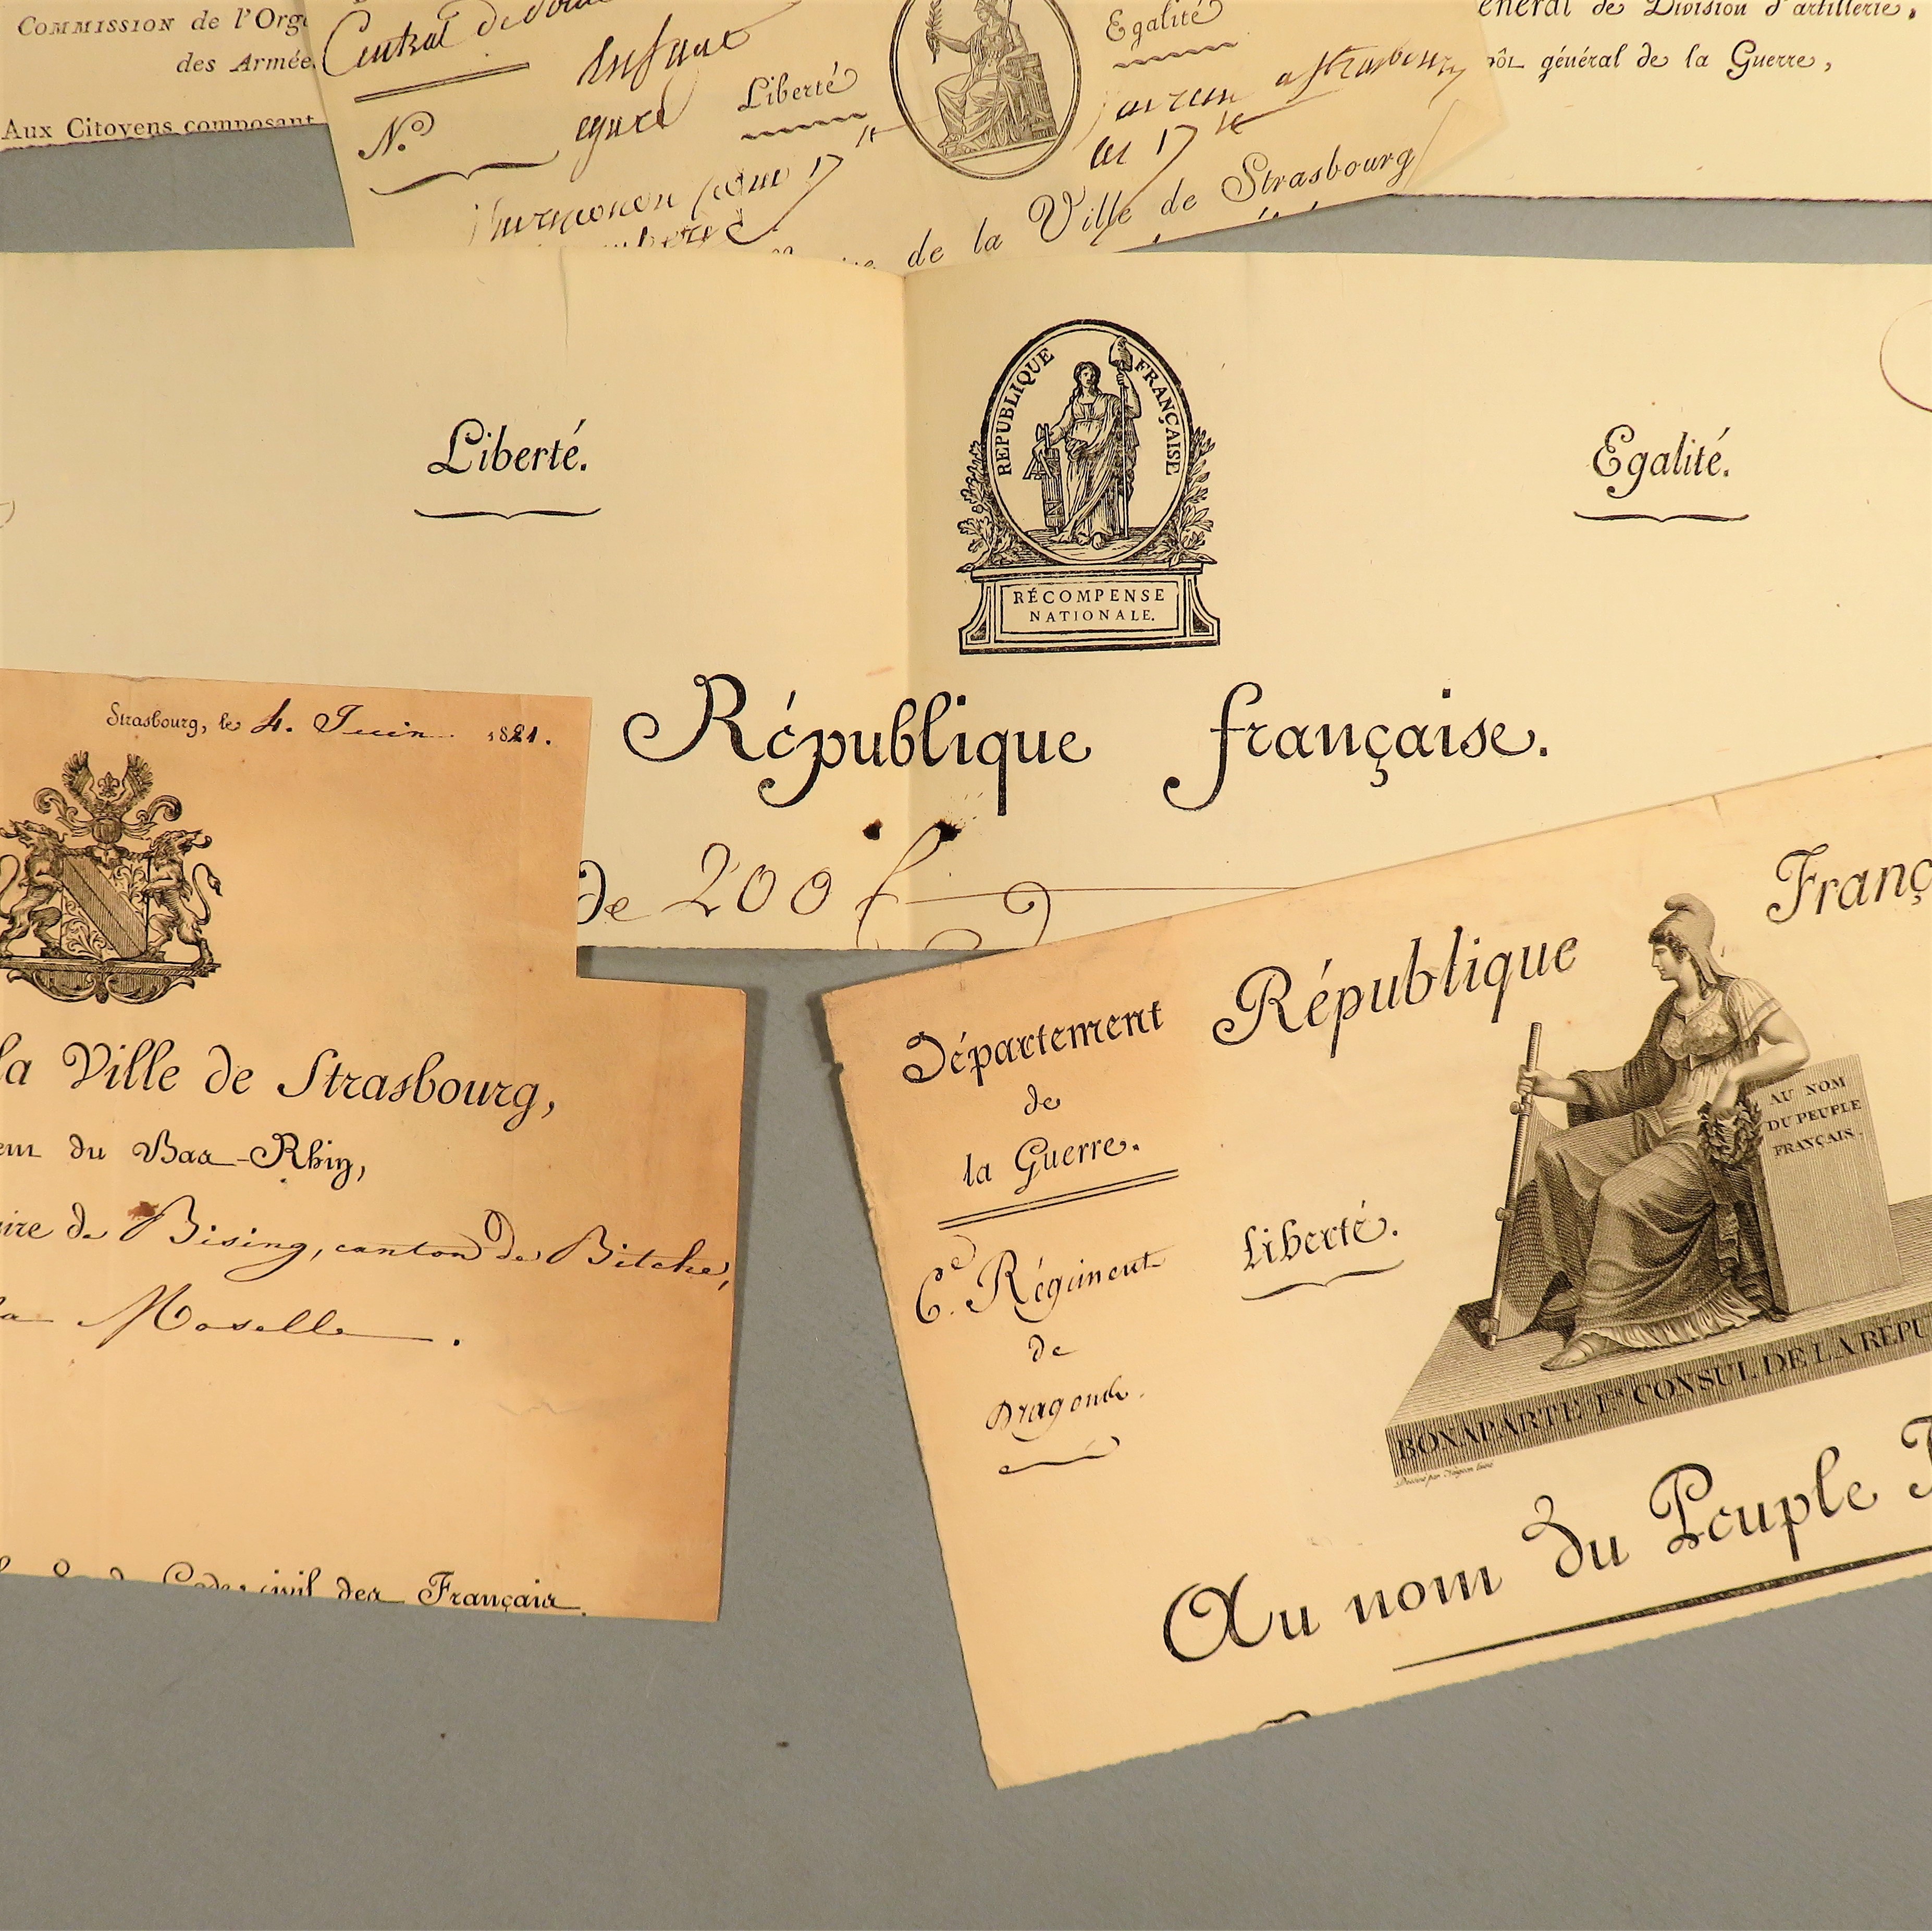 COMMISSION de l'Orga
des Armée
Aux Citoyens composant
Central de
N.o
Liberté
Egalité
a Strasbourg
de la Ville de Strasbourg
énéral de Division d'artillerie,
général de la Guerre,
Liberté.
REPUBLIQUE FRANÇAISE
RÉCOMPENSE
NATIONALE.
Egalité.
République française.
de 200 f
Strasbourg, le 4. Juin 1821.
la Ville de Strasbourg,
du Bas-Rhin,
ire de Bising, canton de Bitche,
la Moselle.
Code civil des Français.
Département
de
la Guerre.
6.e Régiment
de
Dragons.
République Franç
Liberté.
AU NOM
DU PEUPLE
FRANÇAIS.
BONAPARTE 1er CONSUL DE LA REPU
Au nom du Peuple